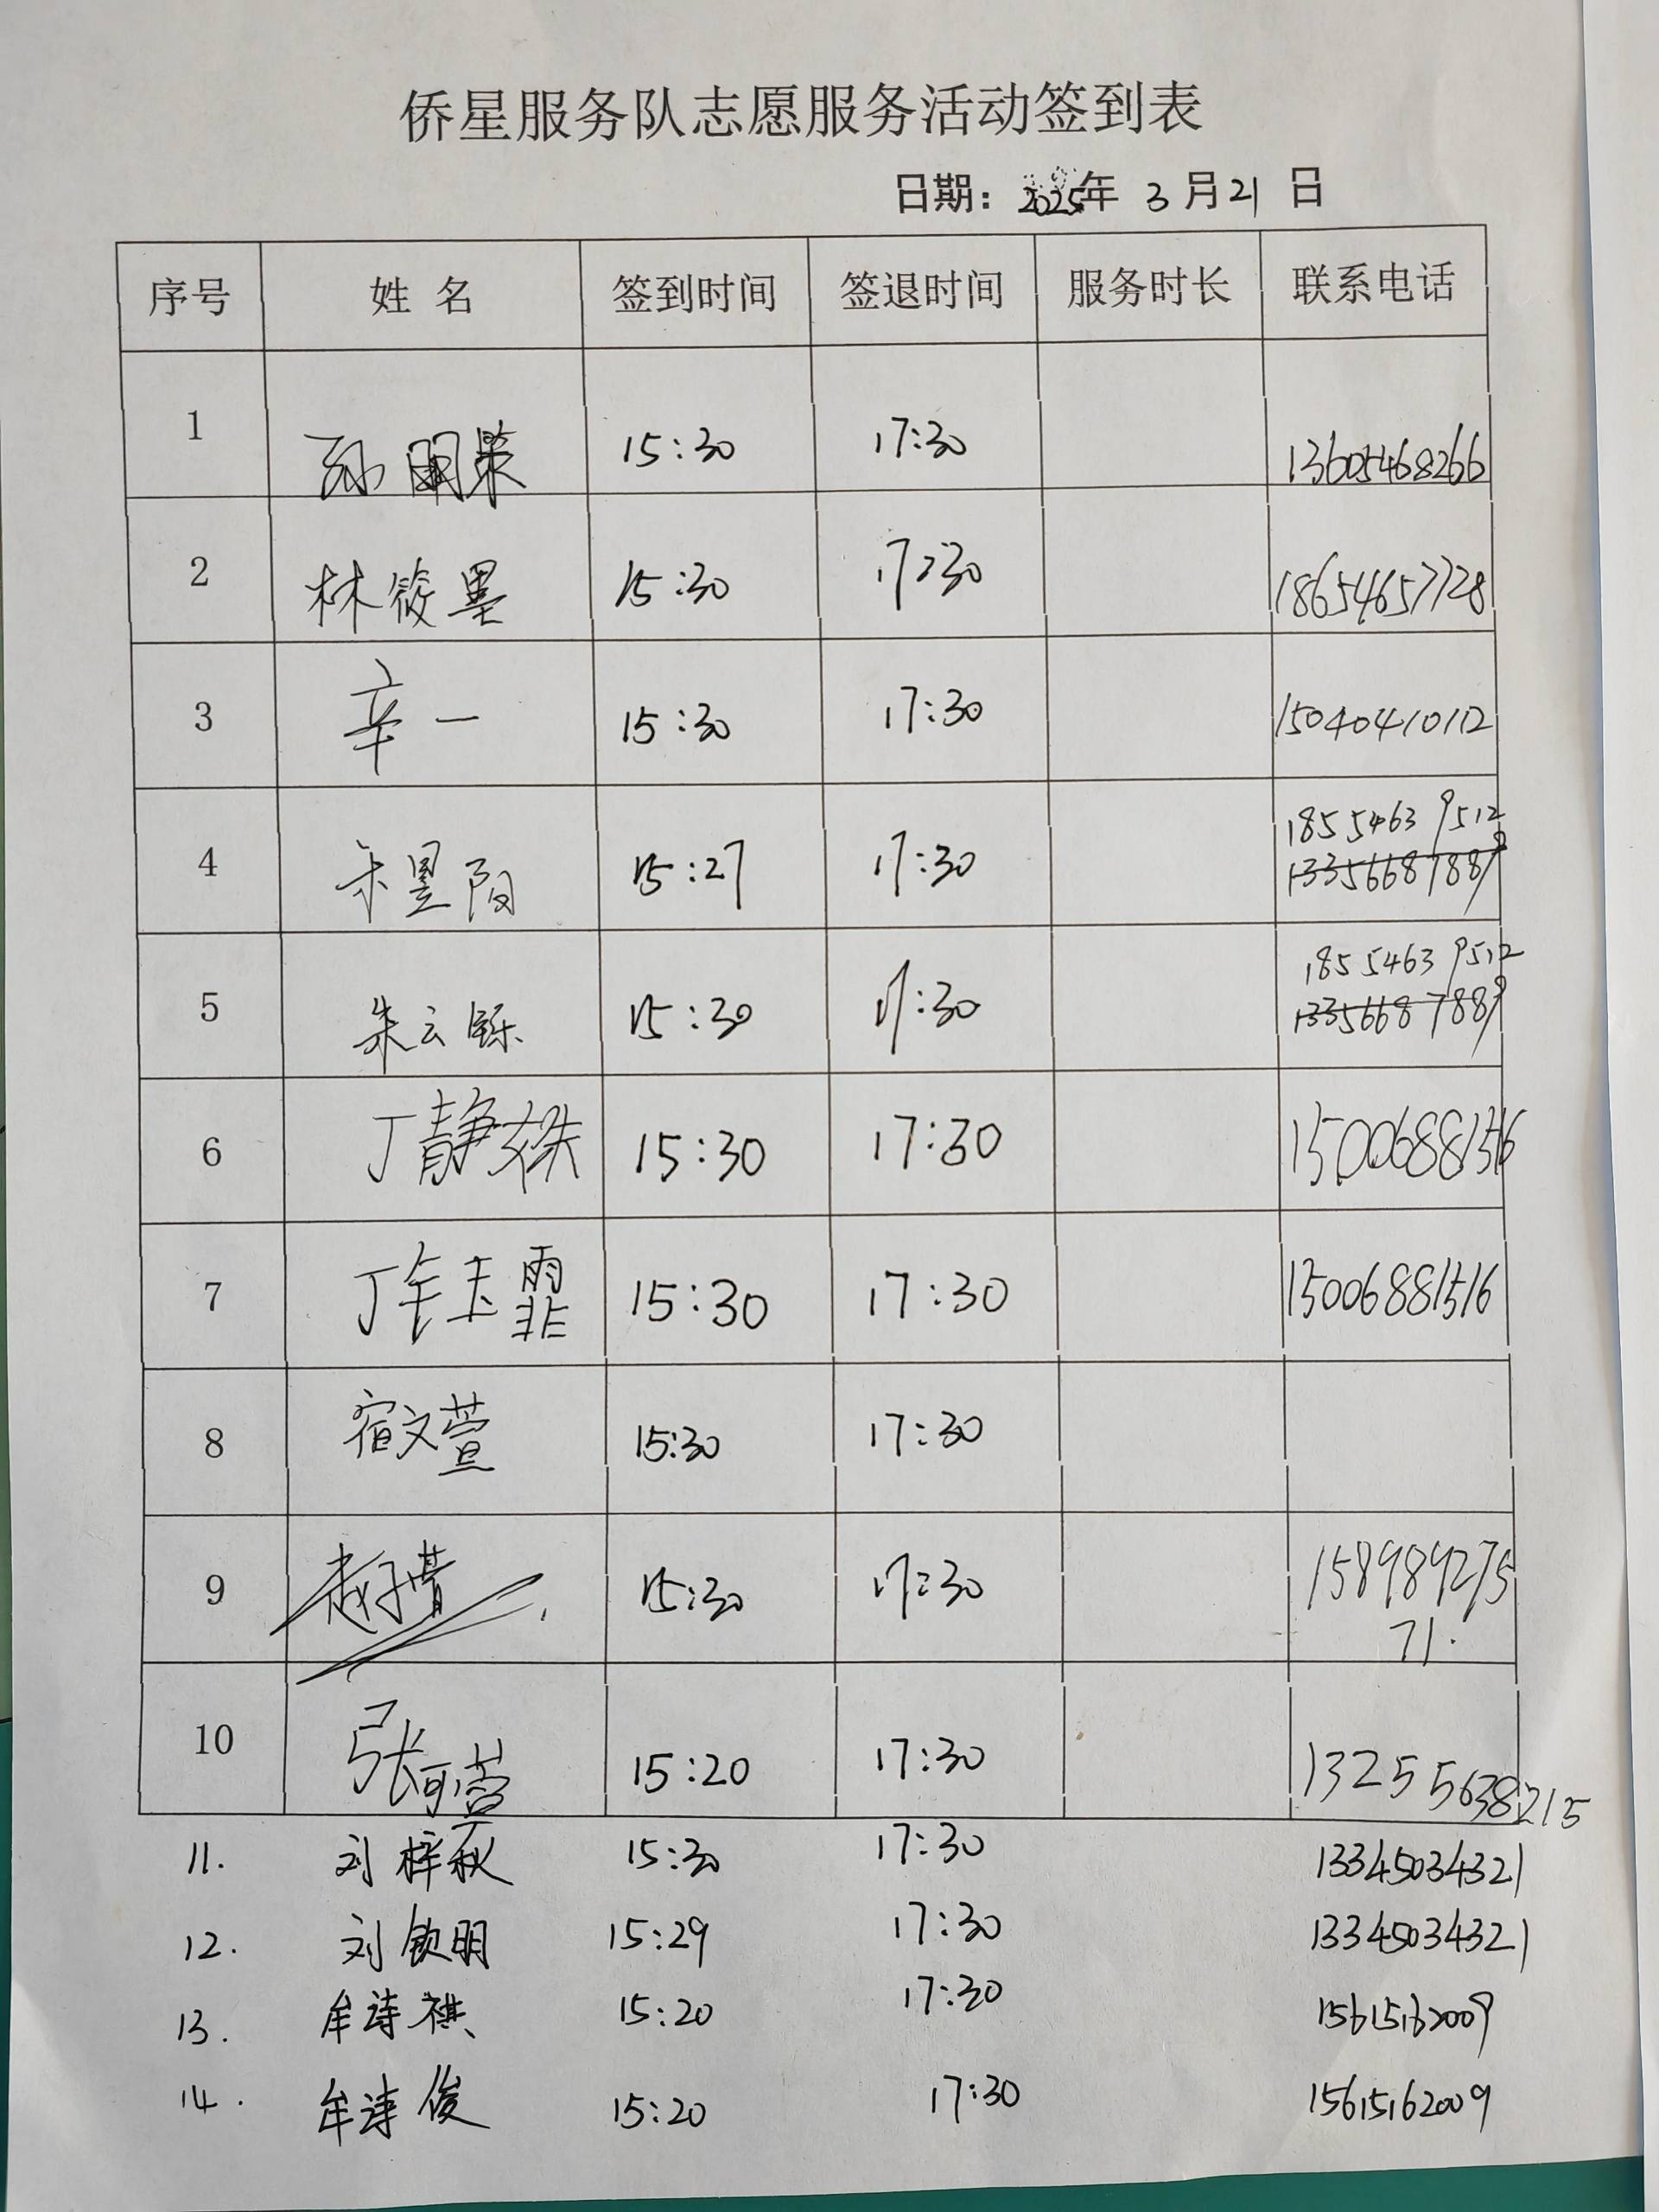 侨星服务队志愿服务活动签到表
日期：2025年 3 月 21 日
序号 姓 名 签到时间 签退时间 服务时长 联系电话
1 孙明荣 15:30 17:30 13605468266
2 林筱墨 15:30 17:30 18654657728
3 辛一 15:30 17:30 15040410112
4 朱昱阳 15:27 17:30 18554639512
13356687889
5 朱云铄 15:30 17:30 18554639512
13356687889
6 丁静姝 15:30 17:30
7 丁钰霏 15:30 17:30 15006881516
8 宿文萱 15:30 17:30
9 15:30 17:30 158989275
71.
10 张可萱 15:20 17:30 13255638215
11. 刘梓秋 15:30 17:30 13345034321
12. 刘钦明 15:29 17:30 13345034321
13. 牟诗祺 15:20 17:30 15615162009
14. 牟诗俊 15:20 17:30 15615162009